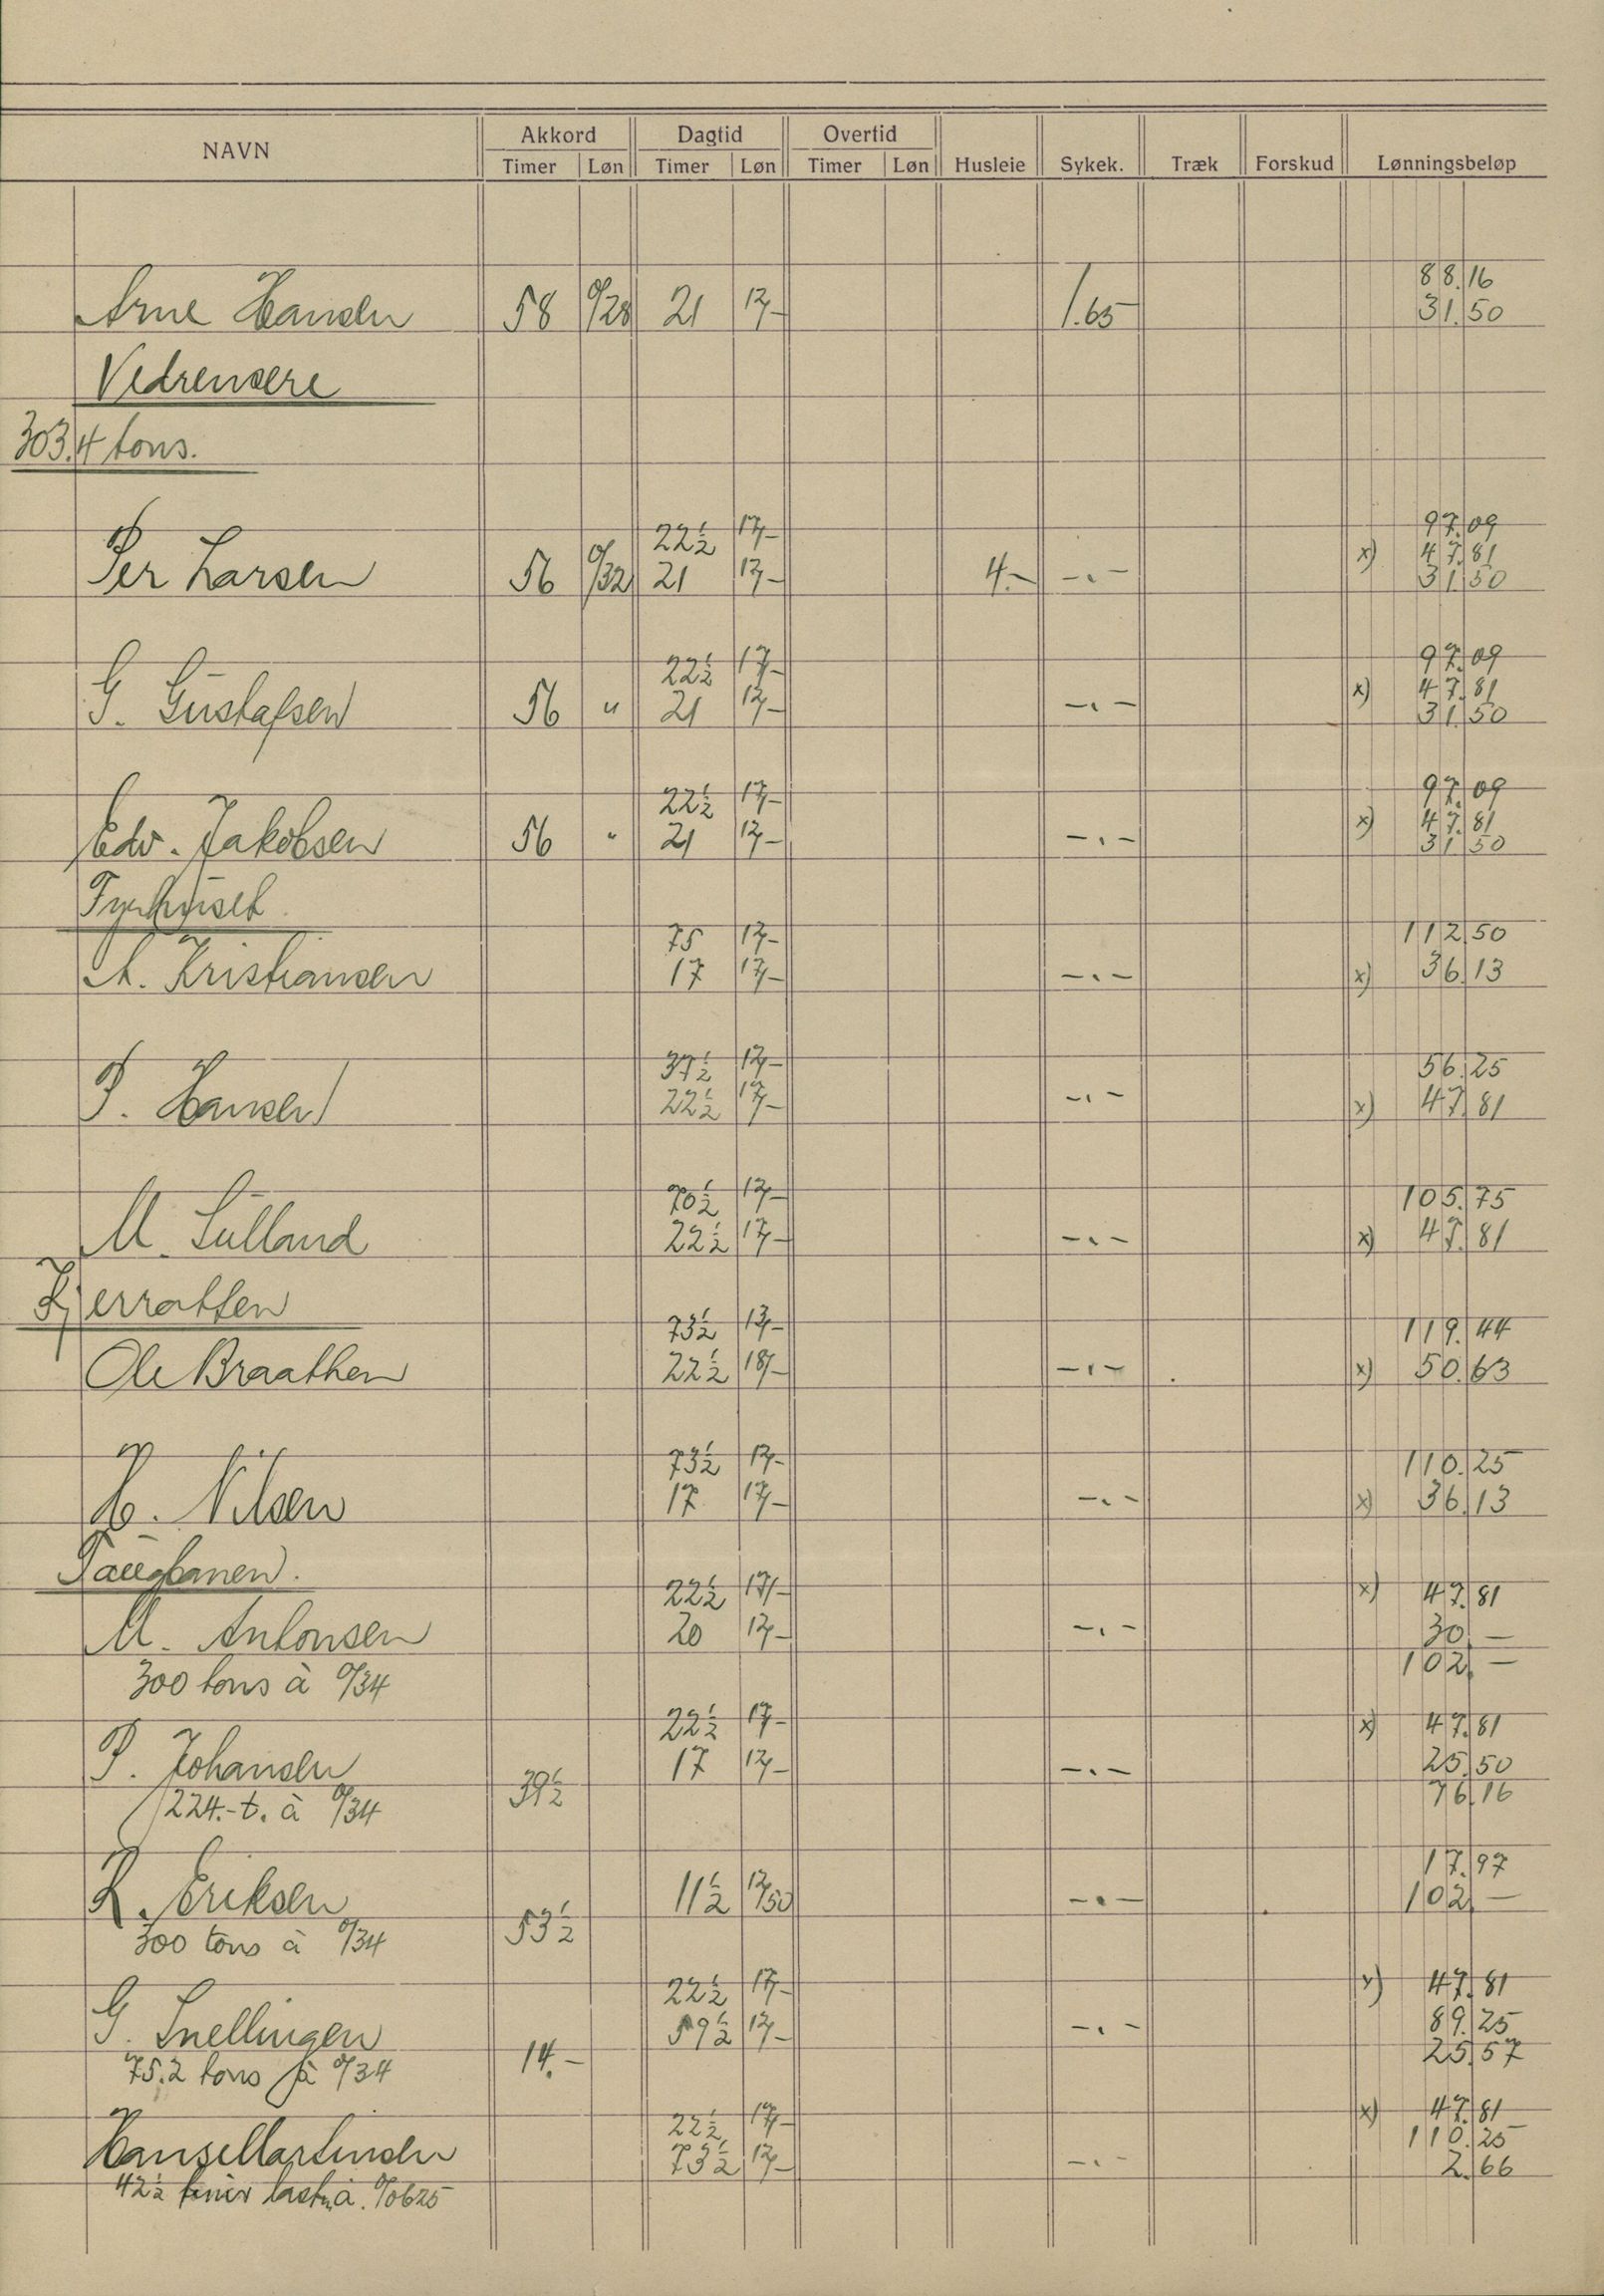 NAVN Akkord Dagtid Overtid Husleie Sykek. Træk Forskud Lønningsbeløp
Timer Løn Timer Løn Timer Løn
88.16
Arne Hansen 58 0/28 21 12/- 1.65 31.50
Vedrensere
303.4 tons.
22½ 17/- 97.09
x) 47.81
Per Larsen 56 0/32 21 12/- 4.- -.- 31.50
22½ 17/- 97.09
x) 47.81
G. Gustafsen 56 " 21 12/- -.- 31.50
22½ 17/- 97.09
x) 47.81
Edv. Jakobsen 56 " 21 12/- -.- 31.50
Fyrhuset
75 12/- 112.50
A. Kristiansen 17 17/- -.- x) 36.13
37½ 12/- 56.25
P. Hansen 22½ 17/- -.- x) 47.81
70½ 12/- 105.75
M. Sulland 22½ 17/- -.- x) 47.81
Kjerratten
73½ 13/- 119.44
Ole Braathen 22½ 18/- -.- x) 50.63
73½ 12/- 110.25
H. Nilsen 17 17/- -.- x) 36.13
Taugbanen.
22½ 17/- x) 47.81
M. Antonsen 20 12/- -.- 30.-
300 tons à 0/34 102.-
22½ 17/- x) 47.81
P. Johansen 17 12/- -.- 25.50
224.- t. à 0/34 39½ 76.16
17.97
K. Eriksen 11½ 12/50 -.- 102.-
300 tons à 0/34 53½
22½ 17/- x) 47.81
G. Snellingen 59½ 12/- -.- 89.25
75.2 tons à 0/34 14.- 25.57
22½ 17/- x) 47.81
Hans Martinsen 73½ 12/- -.- 110.25
42½ à 0/0625 2.66